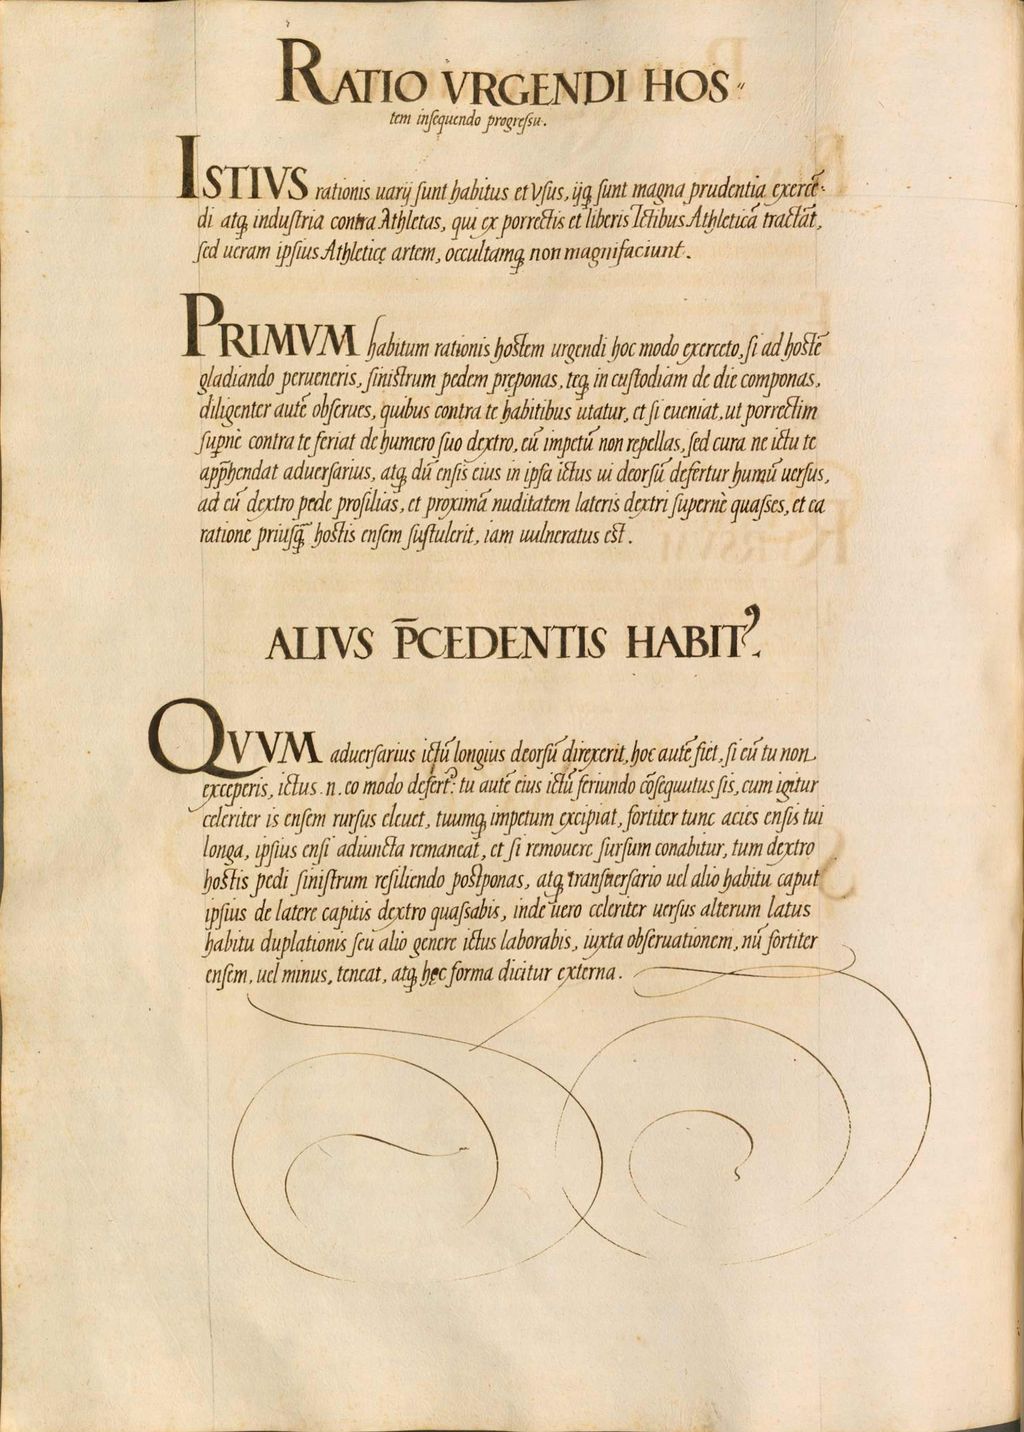 RATIO VRGENDI HOS〃
tem insequendo progressu.
ISTIVS rationis uarij sunt habitus et Vsus, ijq̨ sunt magna prudentia exercē-
di atq̨ industria contra Athletas, qui ex porrectis et liberis Ictibus Athleticā tractāt,
sed ueram ipsius Athleticę artem, occultamq̨ non magnifaciunt.
PRIMVM habitum rationis hostem urgendi hoc modo exerceto, si ad hostē
gladiando perueneris, sinistrum pedem pręponas, teq̨ in custodiam de die componas,
diligenter autē obserues, quibus contra te habitibus utatur, et si eueniat, ut porrectim
supnè contra te feriat de humero suo dextro, eū impetū non repellas, sed cura ne ictu te
app̄hendat aduersarius, atq̨ dū ensis eius in ipsa ictus ui deorsū defertur humū uersus,
ad eū dextro pede prosilias, et proximā nuditatem lateris dextri supernè quasses, et ea
ratione priusq̨̄ hostis ensem sustulerit, iam uulneratus est.
ALIVS P̄CEDENTIS HABIT⁹.
QVVM aduersarius ictū longius deorsū direxerit, hoc autē fiet, si eū tu non
exceperis, ictus .n. eo modo defert᷑: tu autē eius ictū feriundo cōsequutus sis, cum igitur
celeriter is ensem rursus eleuet, tuumq̨ impetum excipiat, fortiter tunc acies ensis tui
longa, ipsius ensi adiuncta remaneat, et si remouere sursum conabitur, tum dextro
hostis pedi sinistrum resiliendo postponas, atq̨ transuersario uel alio habitu caput
ipsius de latere capitis dextro quassabis, inde uero celeriter uersus alterum latus
habitu duplationis seu alio genere ictus laborabis, iuxta obseruationem, nū fortiter
ensem, uel minus, teneat, atq̨ hęc forma dicitur externa.